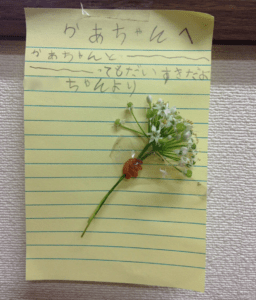 かあちゃんへ
かあちゃんと
てもだいすきだよ
ちゃんより